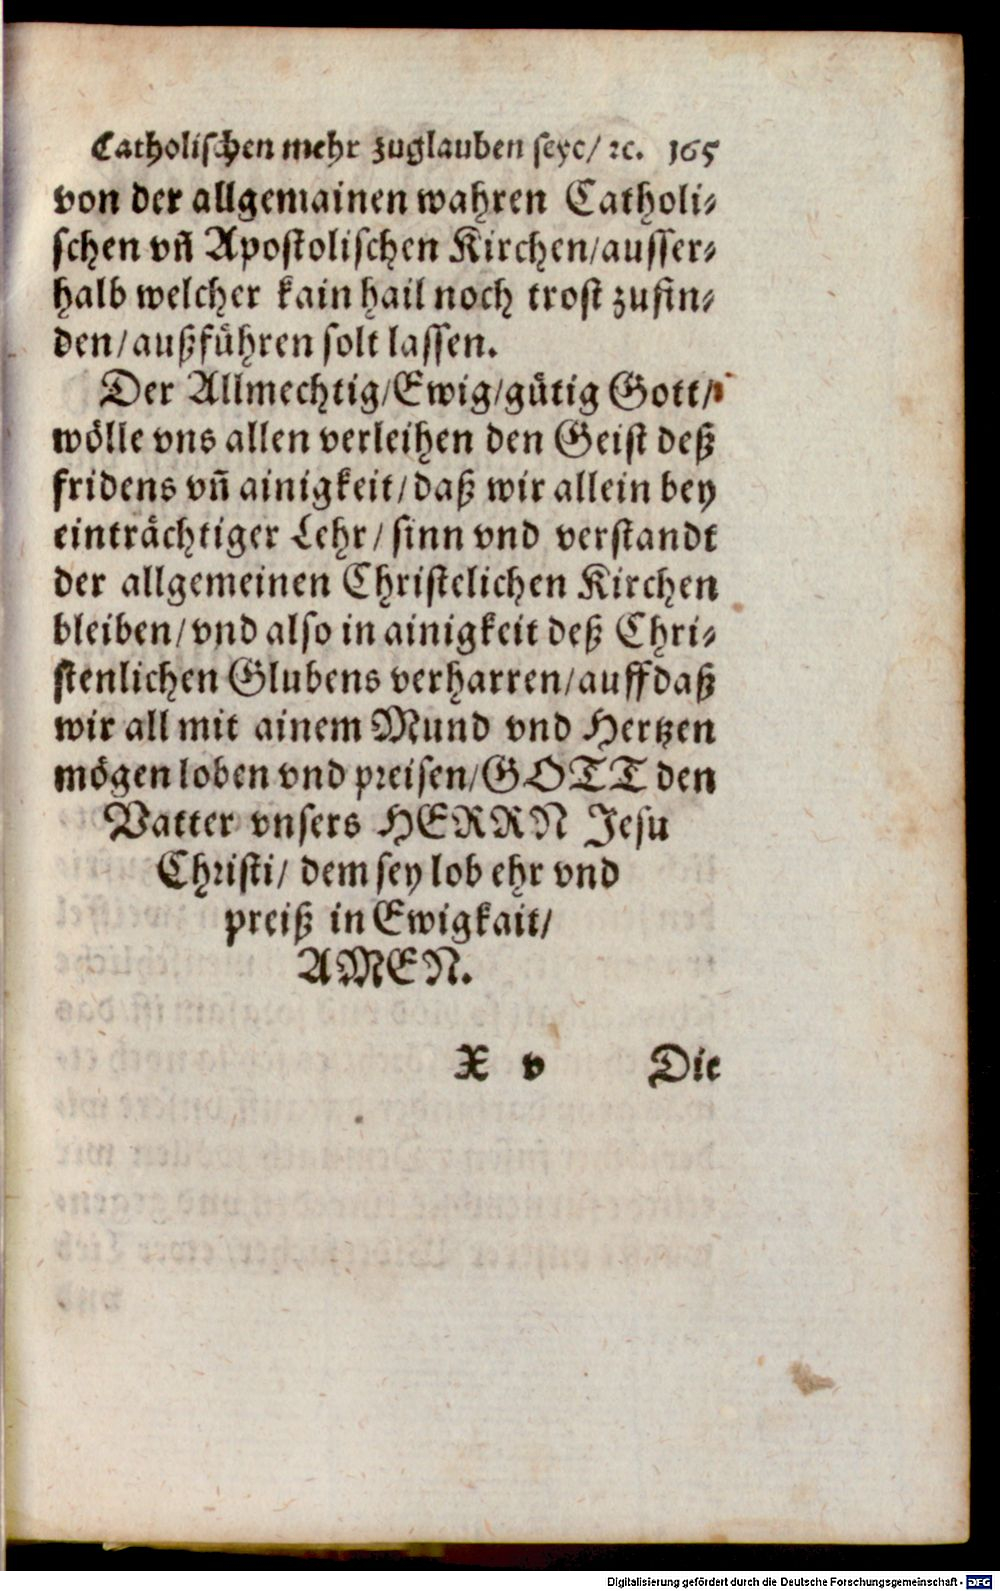 Catholischen mehr zuglauben seye/ ꝛc. 165
von der allgemainen wahren Catholi⸗
schen vñ Apostolischen Kirchen/ausser⸗
halb welcher kain hail noch trost zufin⸗
den/außführen solt lassen.
Der Allmechtig/Ewig/gütig Gott/
wölle vns allen verleihen den Geist deß
fridens vñ ainigkeit/daß wir allein bey
einträchtiger Lehr/ sinn vnd verstandt
der allgemeinen Christelichen Kirchen
bleiben/vnd also in ainigkeit deß Chri⸗
stenlichen Glubens verharren/auffdaß
wir all mit ainem Mund vnd Hertzen
mögen loben vnd preisen/GOTT den
Vatter vnsers HERRN Jesu
Christi/ dem sey lob ehr vnd
preiß in Ewigkait/
AMEN.
X v Die
Digitalisierung gefördert durch die Deutsche Forschungsgemeinschaft - DFG